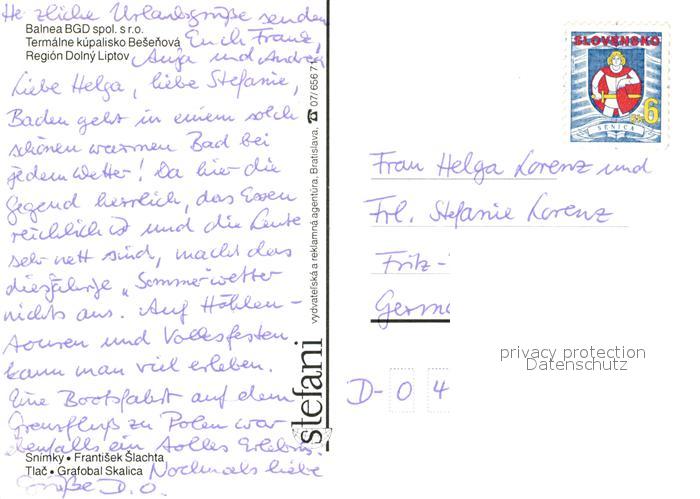 Herzliche Urlaubsgrüße senden
Balnea BGD spol. s r.o.
Termálne kúpalisko Bešeňová
Región Dolný Liptov
Euch Franz,
Anja und Andrea
Liebe Helga, liebe Stefanie,
Baden geht in einem solch
schönen warmen Bad bei
jedem Wetter! Da hier die
Gegend herrlich, das Essen
reichlich ist und die Leute
sehr nett sind, macht das
diesjährige „Sommerwetter
nichts aus. Auf Höhlen-
touren und Volksfesten
kann man viel erleben.
Eine Bootsfahrt auf dem
Grenzfluß zu Polen war
ebenfalls ein tolles Erlebnis.
Snímky • František Šlachta
Tlač • Grafobal Skalica
Nochmals liebe
Grüße D.O.
stefani
vydavateľská a reklamná agentúra, Bratislava, ☎ 07/656 7
SLOVENSKO
6
SENICA
Frau Helga Lorenz und
Frl. Stefanie Lorenz
Fritz-
Germa
privacy protection
Datenschutz
D-04